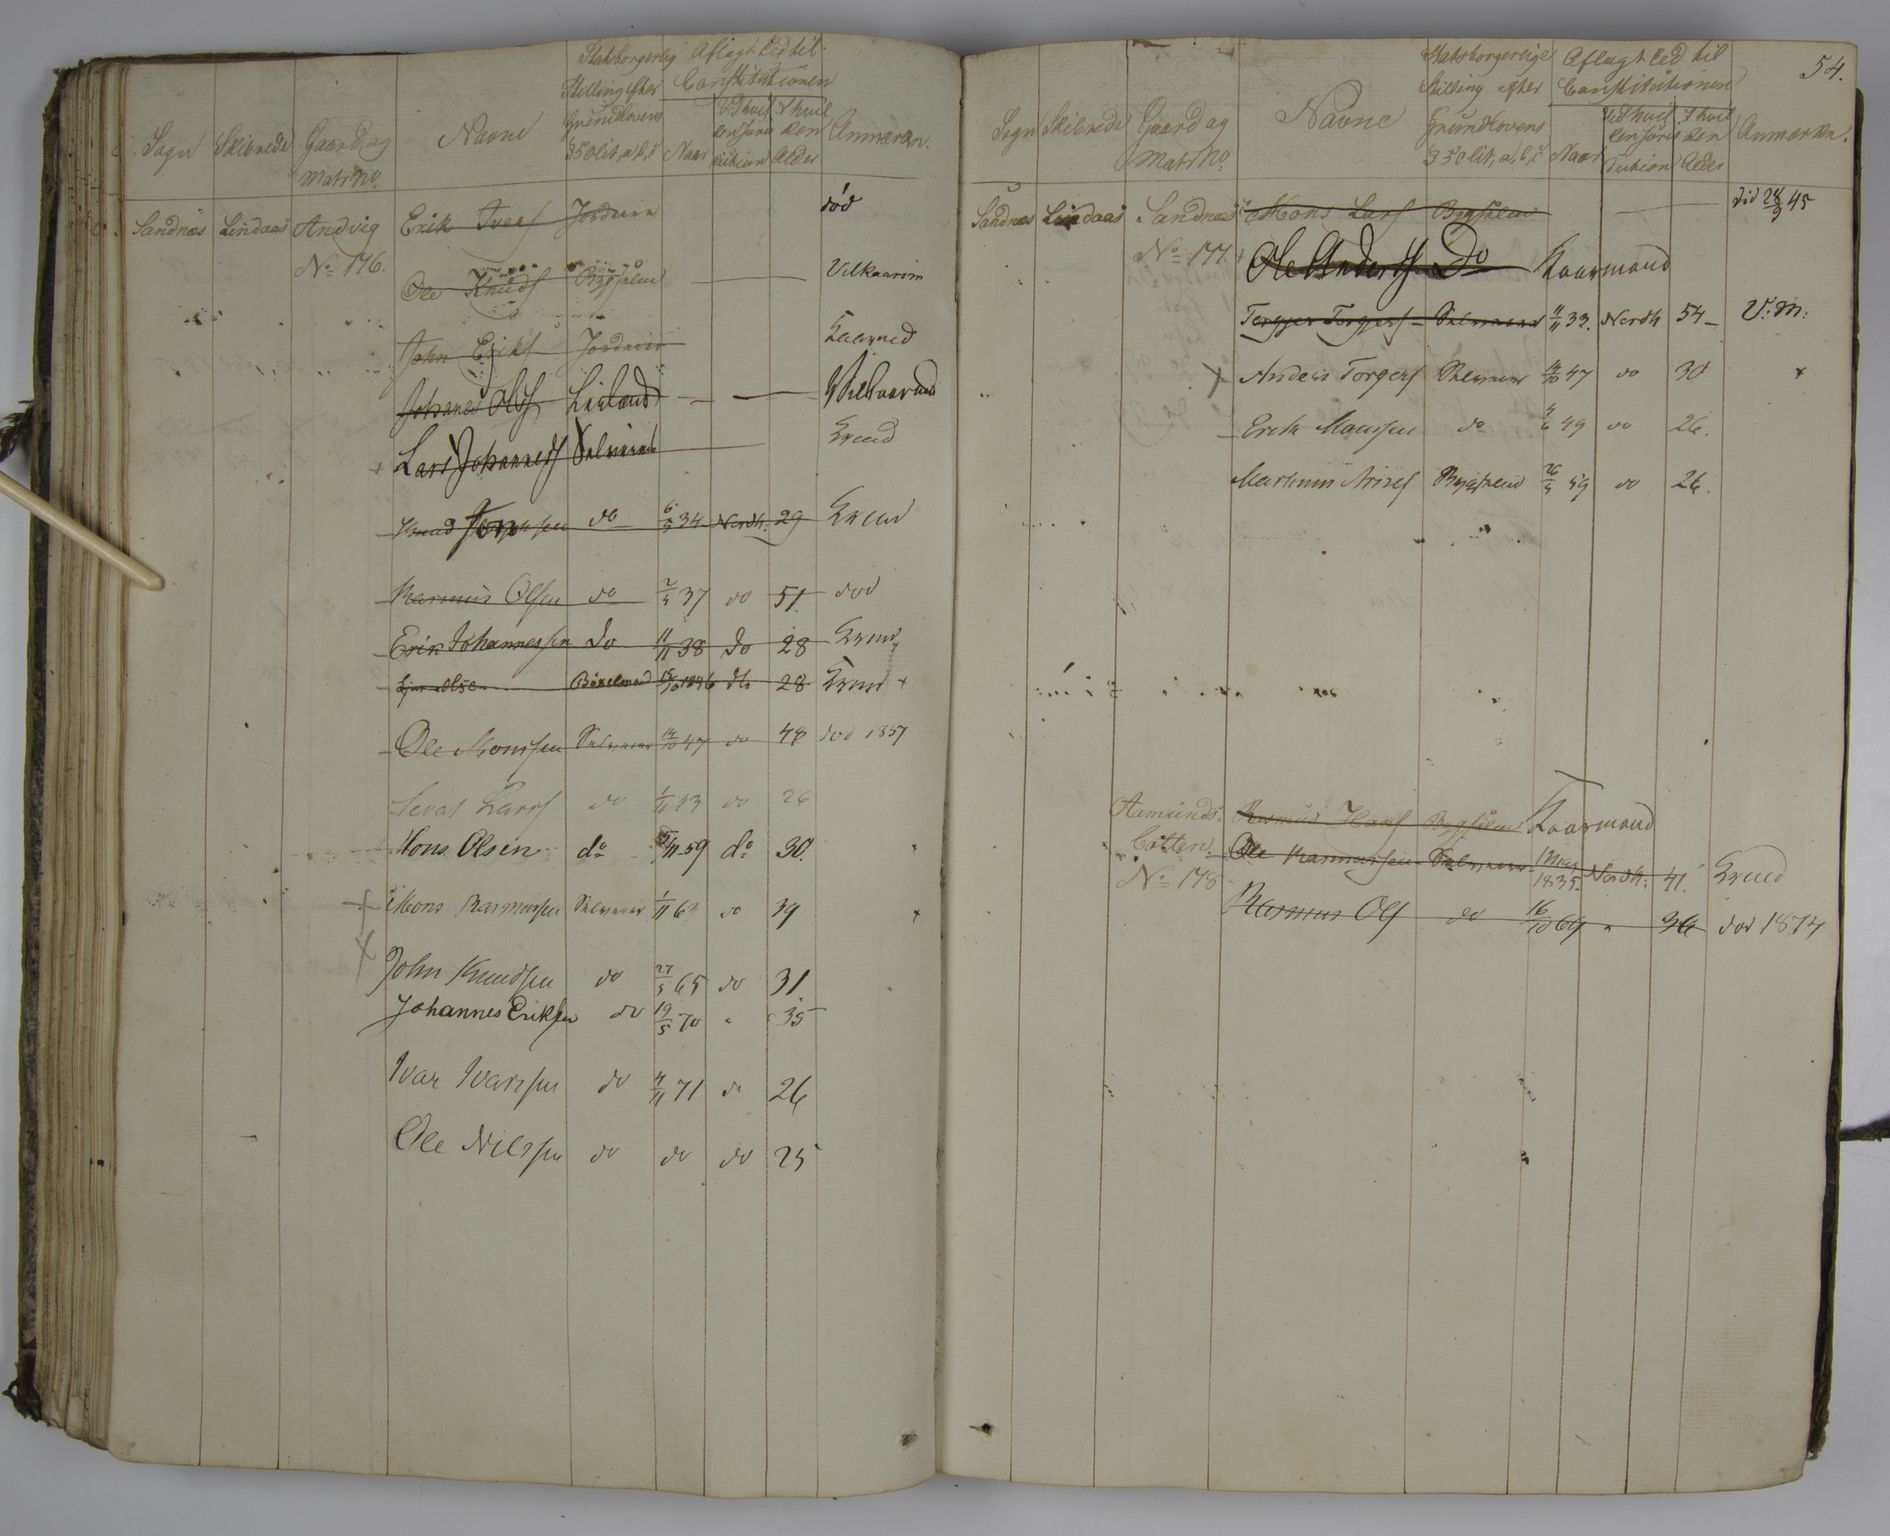 Sogn Skibrede Gaard og Matr No. Navne Statsborgerlig Stilling efter Grundlovens § 50 lit, a, b, c Aflagt Eed til Constitutionen Naar Ved hvilken Jurisdiction I hvilken Alder Anmærkn.
Sandnæs Lindaas Andvig Erik Ivers Jordeier død
No 176. Ole Knuds Bygselmd Vilkaarsm
John Eriks Jordeier Kaarmd
Johanes Ols Leiland Vilkaarmd
Lars Johanneds Selveier
Knud do 6/5 34 Nordh. 29
Rasmus Olsen do 2/5 37 do 51 död
Erik Johannessen do 11/11 38 do 28
Olsen Böxelmand 15/10 1846 dto 28
Ole Monssen Selveier 14/10 47 do 48 död 1857
Sevat Larss do 1/11 53 do 26
Mons Olsen do 5/11 59 do 30.
Mons Rasmussen Selveier 1/11 do 39
John Knudsen do 27/5 65 do 31
Johannes Eriksen do 19/5 70 " 35
Ivar Ivarssen do 4/11 71 do 26
Ole Nilssen do do do 25
54.
Sogn Skibrede Gaard og Matr No. Navne Statsborgerlige Stilling efter Grundlovens § 50 lit, a, b, c Aflagt Eed til Constitutionen Naar Ved hvilken Jurisdiction I hvilken Alder Anmærkn.
Sandnæs Lindaas Sandnæs Mons Lars Bygselmd död 28/9 45
No 177. Ole Anderssen Do Kaarmand
Torgjer Torgers Selveier 11/11 33. Nordh 54 V: M:
Anders Torgers Selveier 14/10 47 do 30 x
Erik Monssen do 4/6 49 do 26.
Martinus Bygselmd 26/5 59 do 26.
Aamunds Rasmus Hans Bygselmd Kaarmand
botten. Ole Rasmussen Selveier 1 1835. Nordh: 41.
No 178 Rasmus Ols do 16/10 69 " 36 död 1874